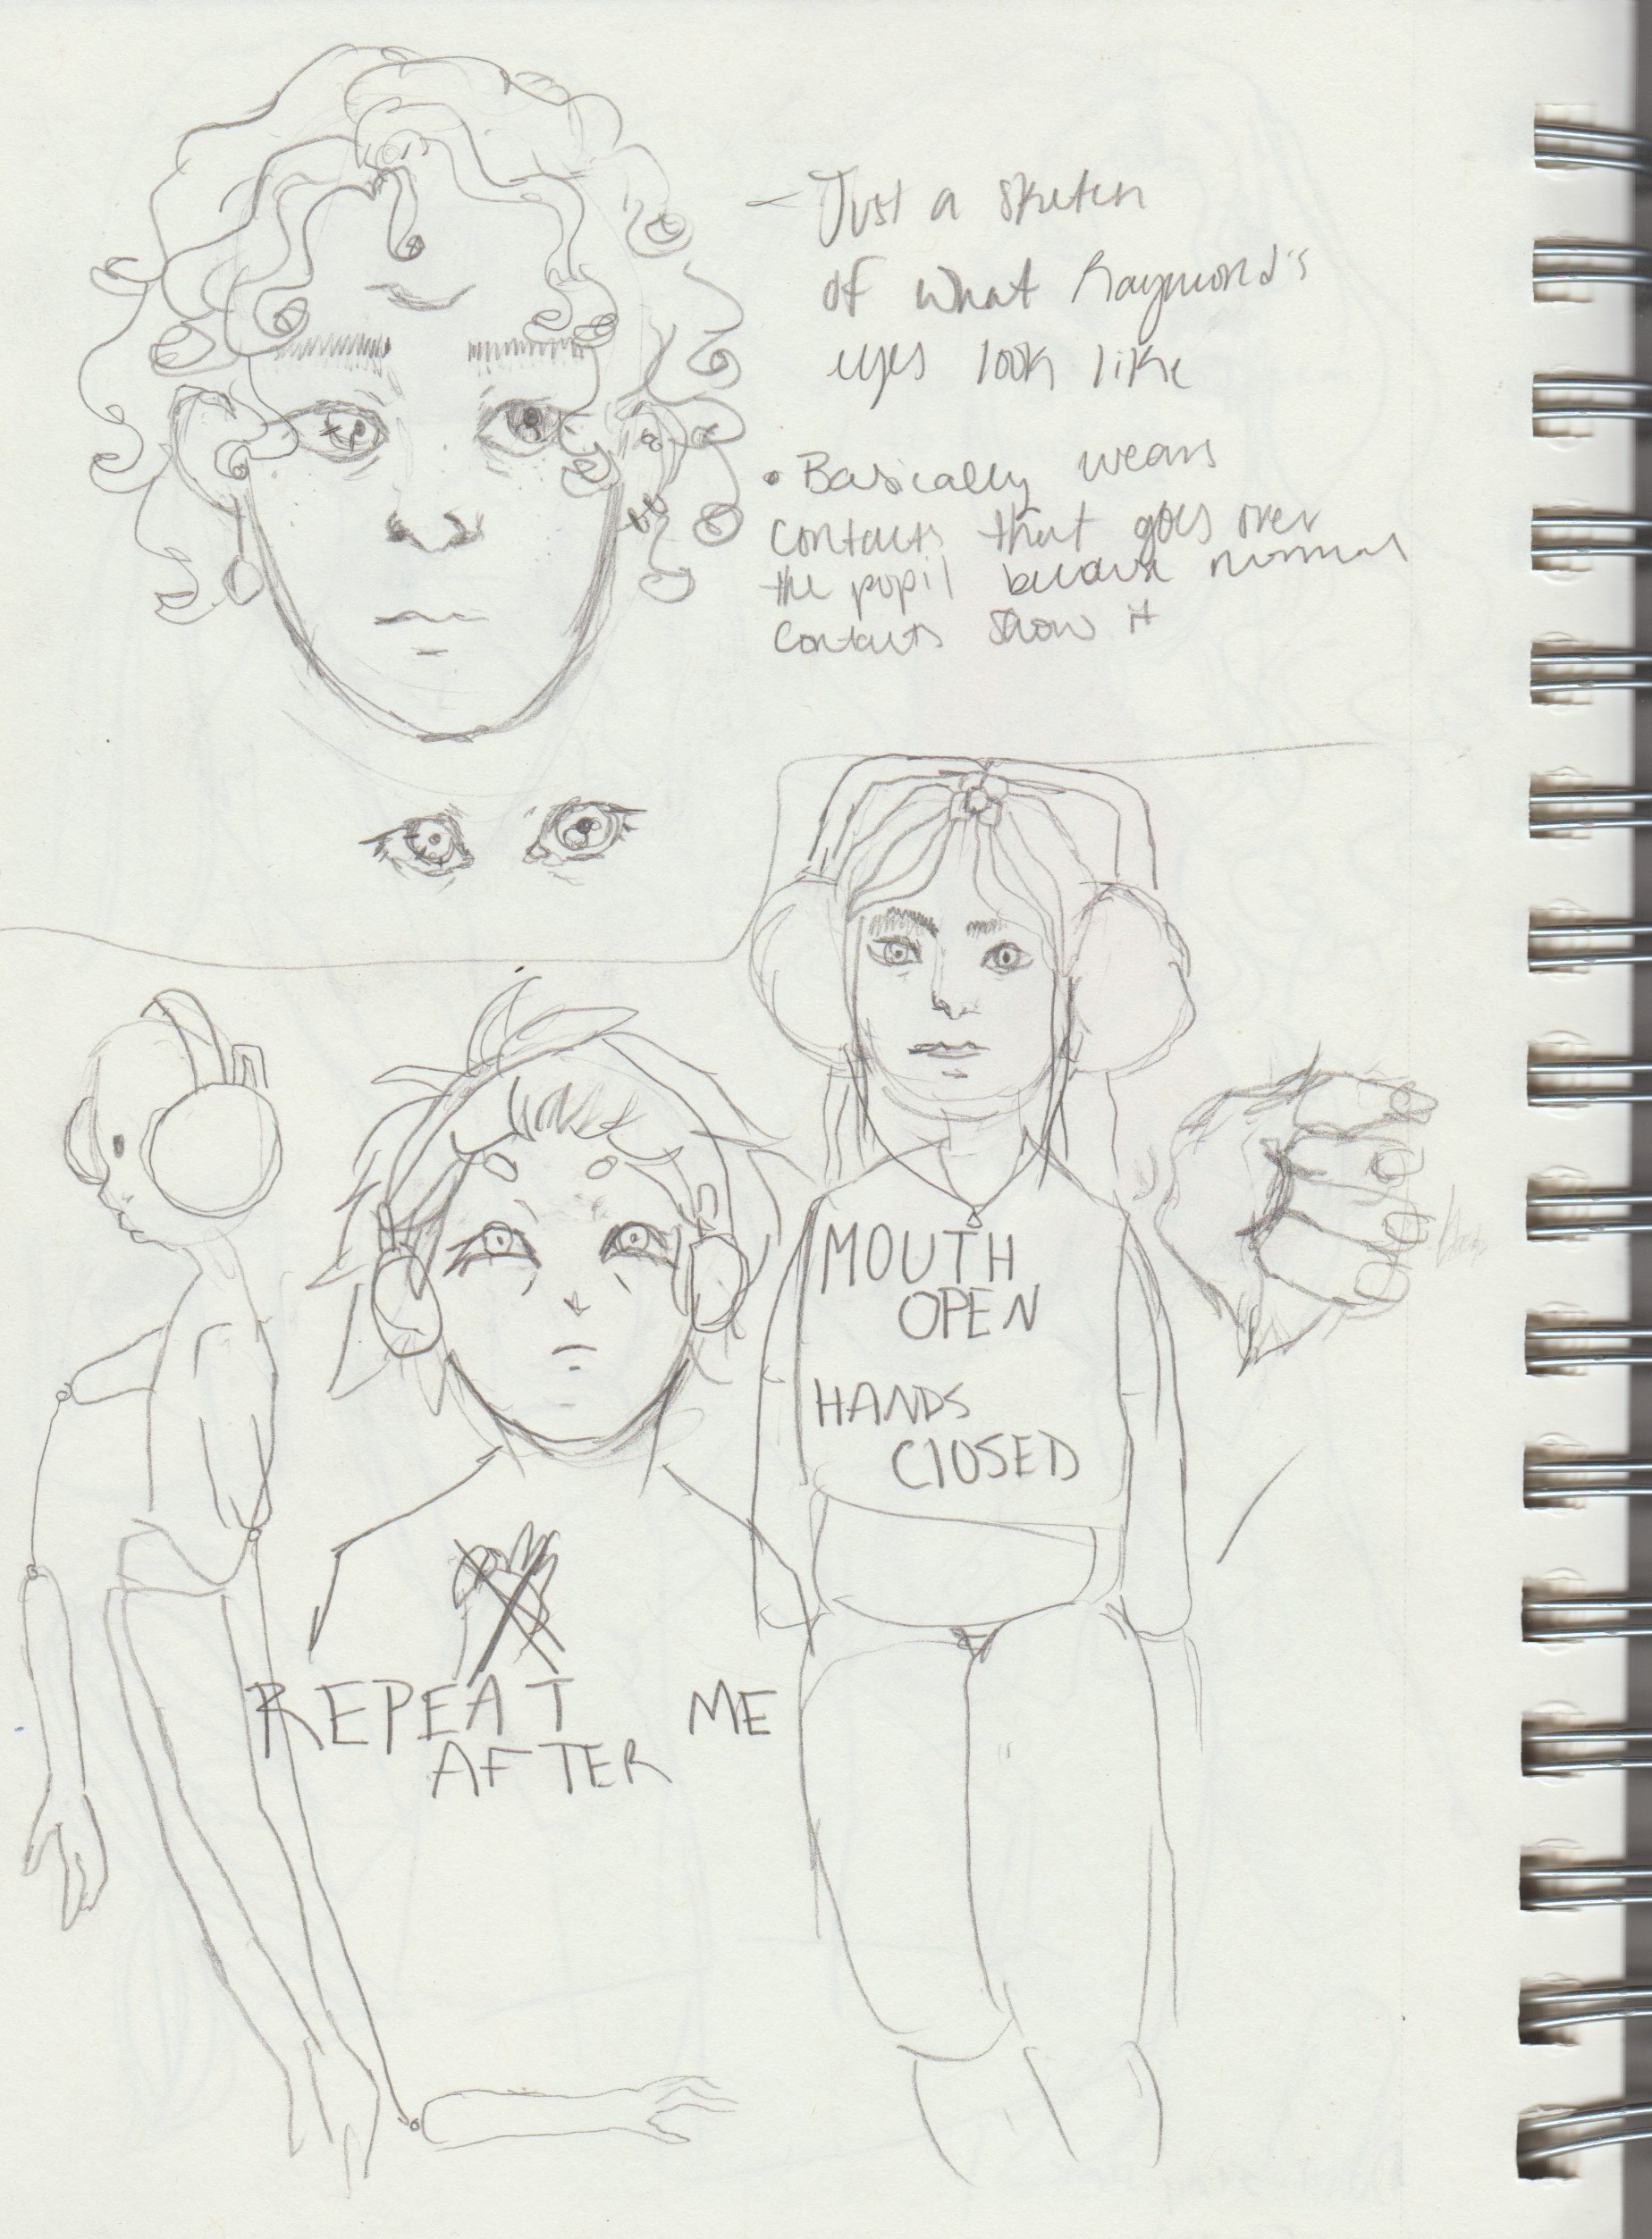 - Just a sketch
of what Raymond's
eyes look like
• Basically wears
contacts that goes over
the pupil because normal
contacts show it
MOUTH
OPEN
HANDS
ClOSED
REPEAT ME
AFTER